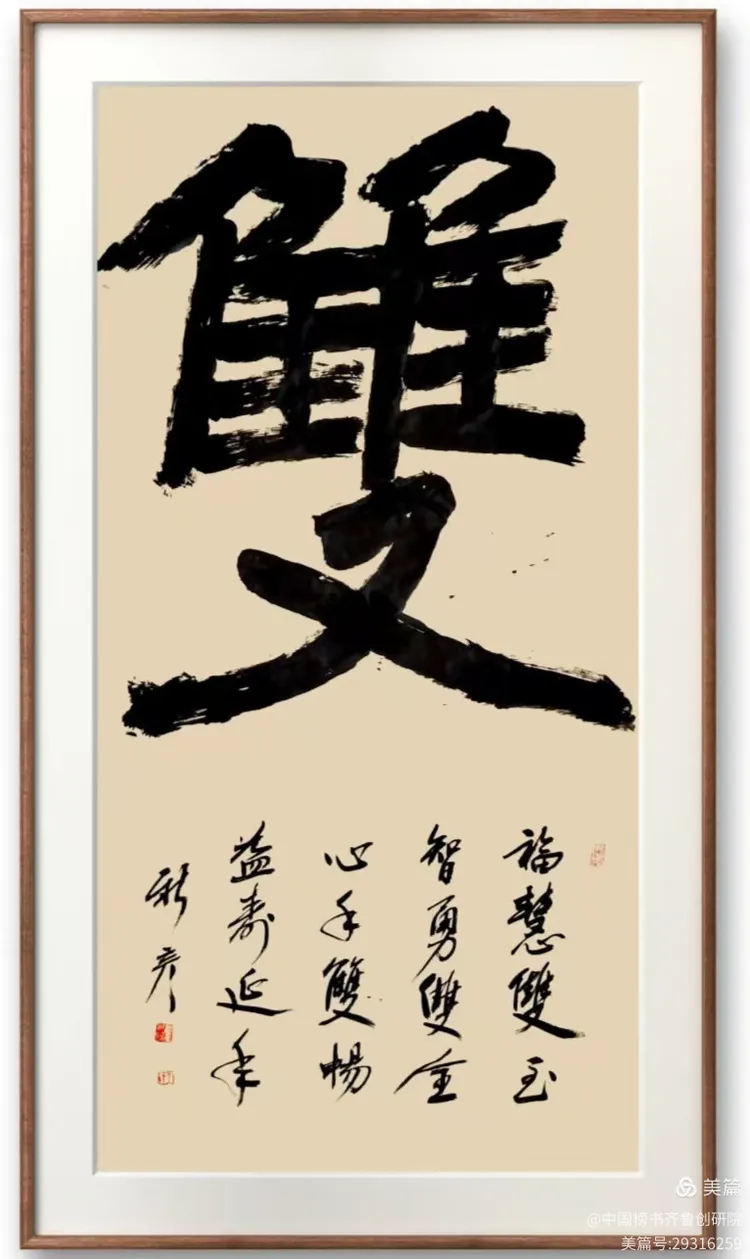 雙
福慧雙至
智勇雙全
心手雙暢
益壽延年
新彦
美篇
@中国榜书齐鲁创研院
美篇号:29316259